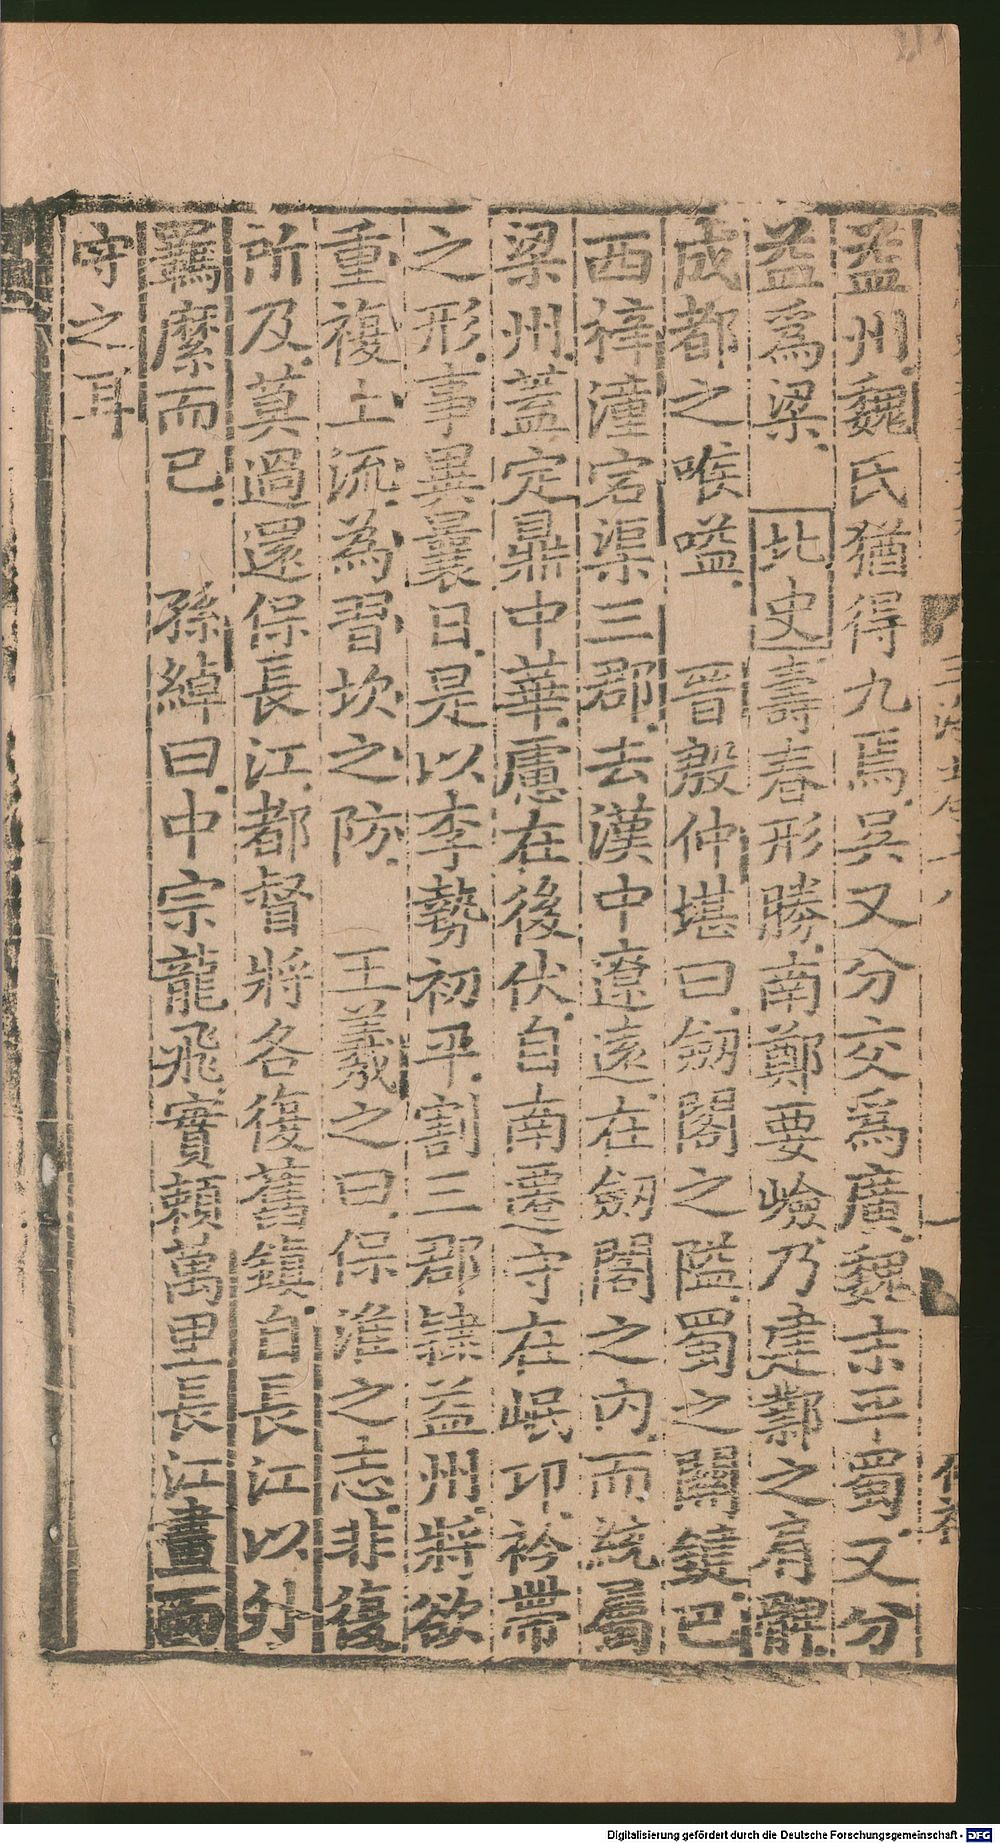 益州魏氏猶得九焉吳又分交爲廣魏末平蜀又分
益爲梁 北史壽春形勝南鄭要嶮乃建鄴之肩髀
成都之喉嗌 晉殷仲堪曰劒閣之隘蜀之關鍵巴
西梓潼宕渠三郡去漢中遼遠在劒閣之內而統屬
梁州蓋定鼎中華慮在後伏自南遷守在岷卭衿帶
之形事異曩日是以李勢初平割三郡隷益州將欲
重複上流為習坎之防 王羲之曰保淮之志非復
所及莫過還保長江都督將各復舊鎮自長江以外
羈縻而已 孫綽曰中宗龍飛實賴萬里長江畫而
守之耳
Digitalisierung gefördert durch die Deutsche Forschungsgemeinschaft - DFG